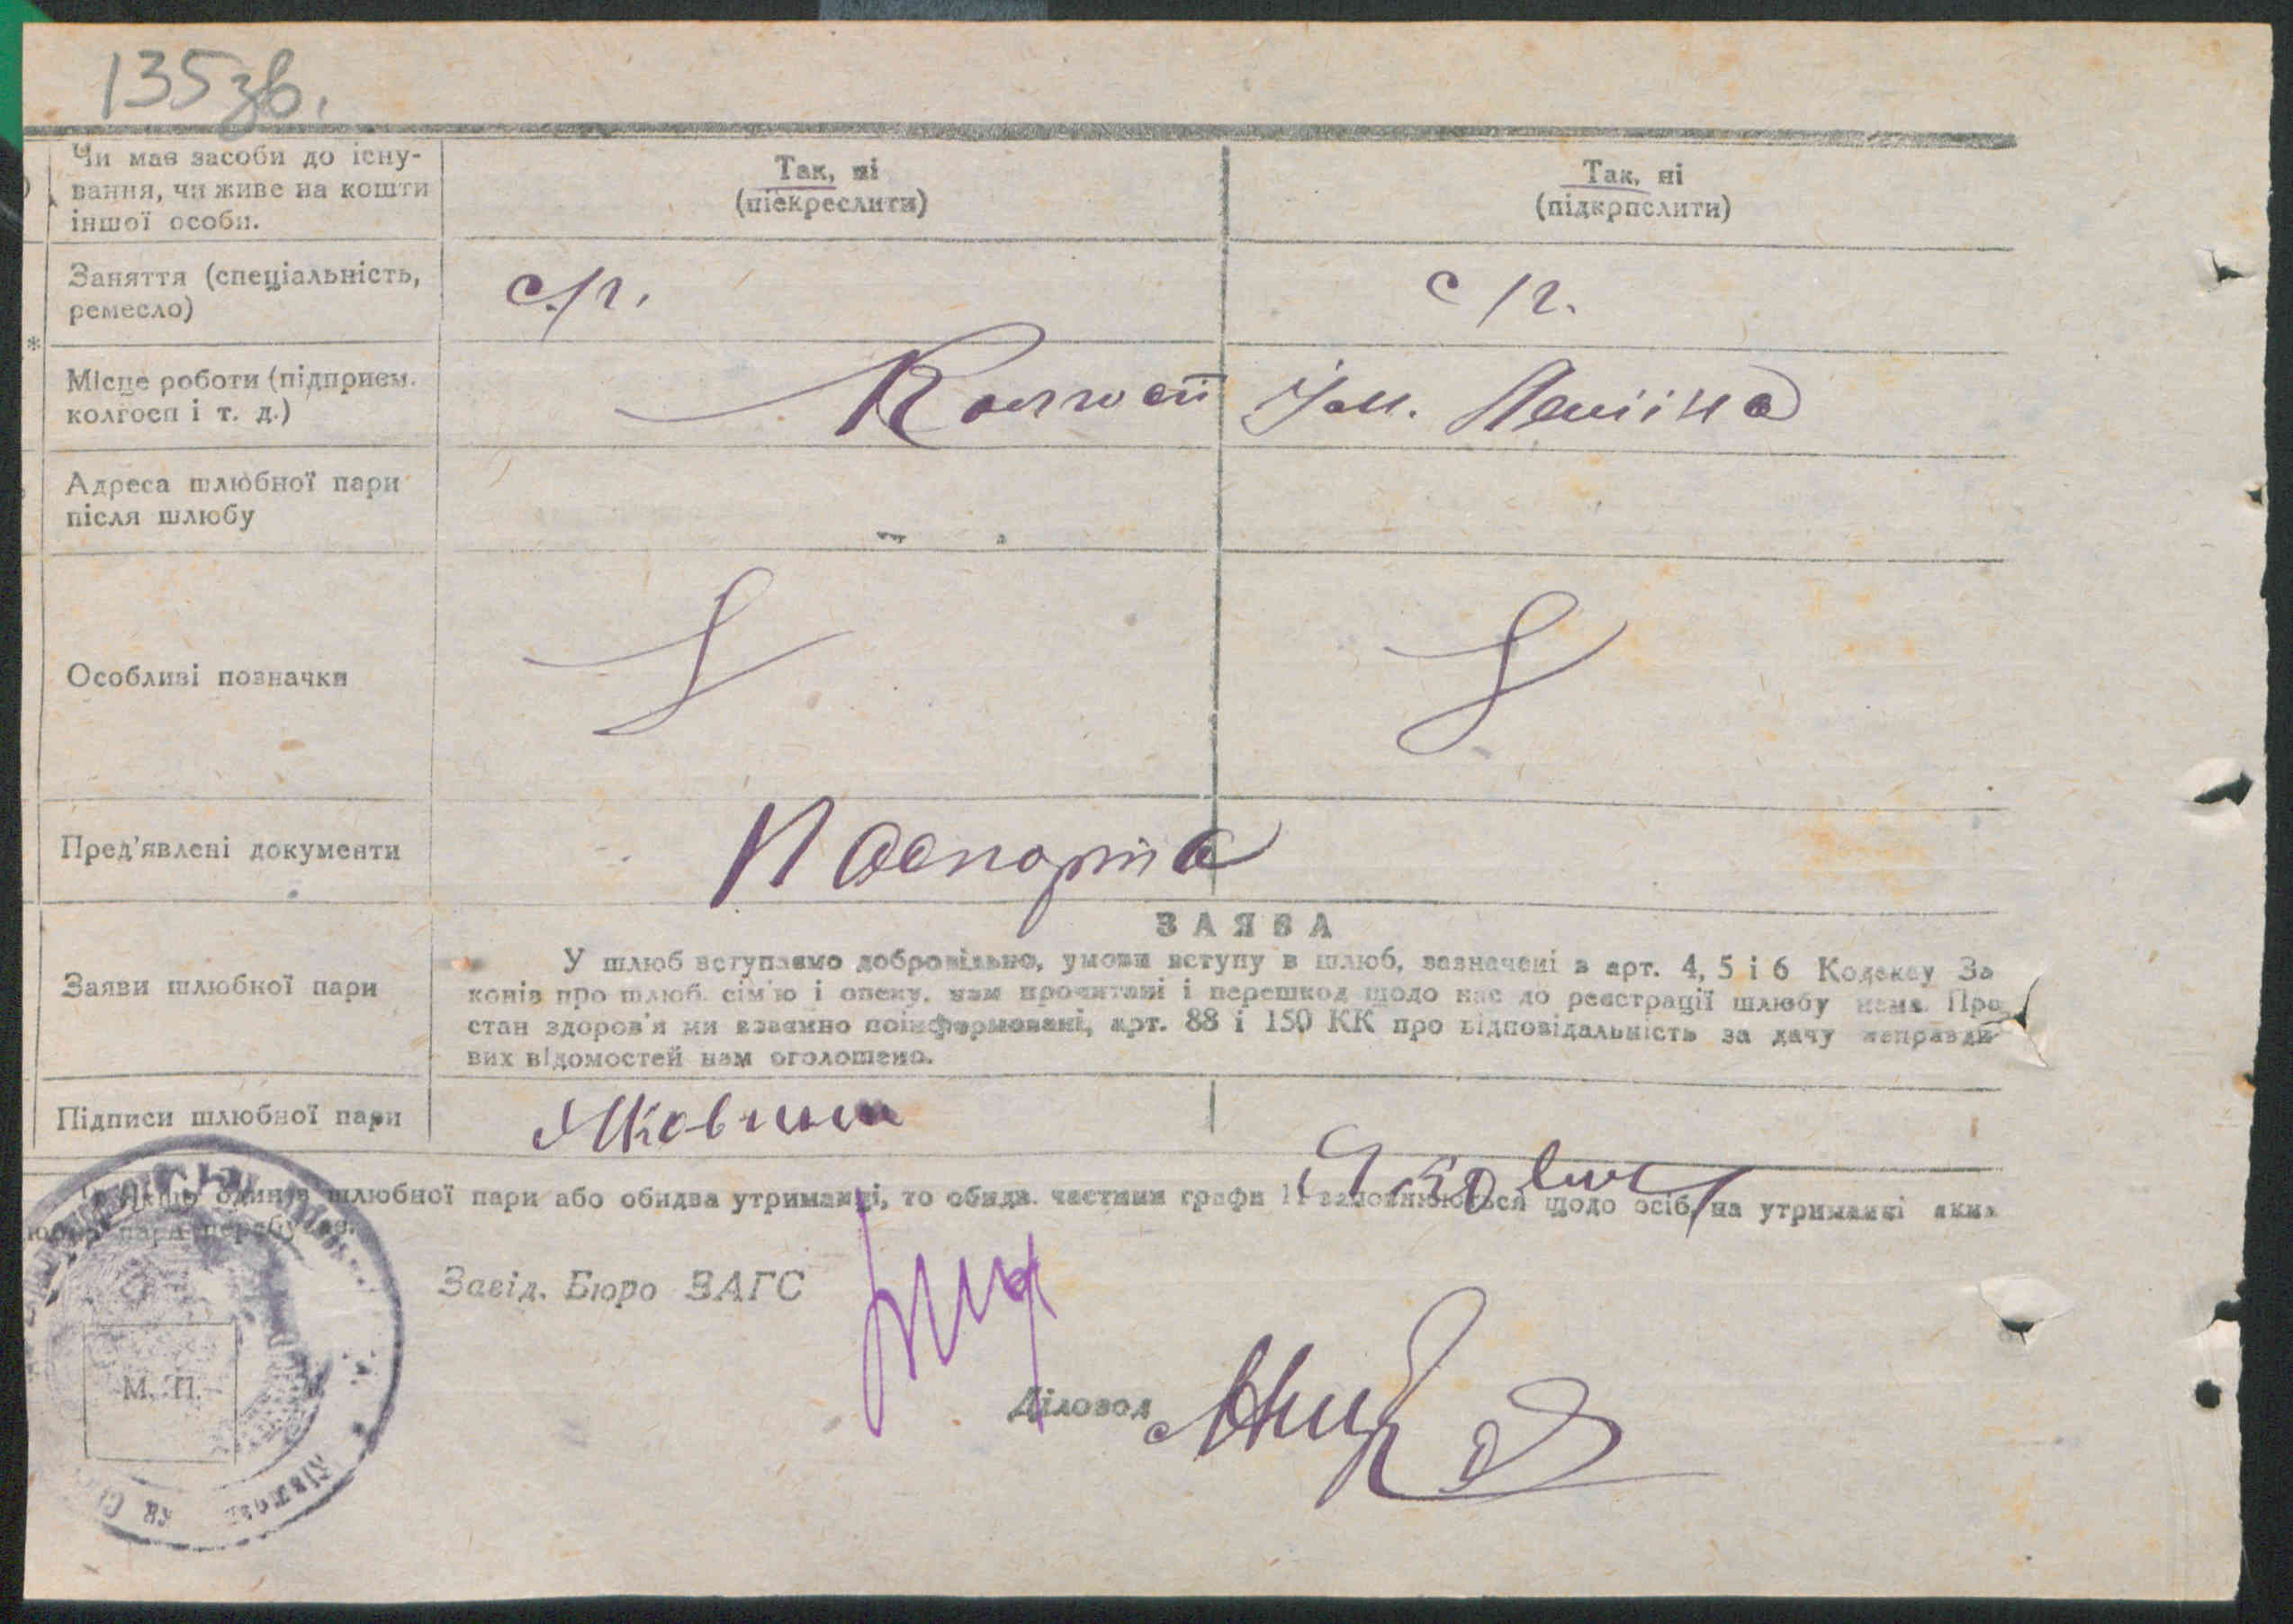 135зв.
Чи має засоби до існу-
вання, чи живе на кошти
іншої особи.
Так, ні
(піекреслити)
Так, ні
(підкрпслити)
Заняття (спеціальність,
ремесло)
с/г.
с/г.
*
Місце роботи (підприєм.
колгосп і т. д.)
Колгосп Ім. Леніна
Адреса шлюбної пари
після шлюбу
Особливі позначки
Пред'явлені документи
Паспорта
ЗАЯВА
Заяви шлюбної пари
У шлюб вступаємо добровільно, умови вступу в шлюб, зазначені в арт. 4, 5 і 6 Кодексу За
конів про шлюб. сім'ю і опеку, нам прочитані і перешкод щодо нас до реєстрації шлюбу нема. Про
стан здоров'я ми взаємно поінформовані, арт. 88 і 150 КК про відповідальність за дачу неправди
вих відомостей нам оголошено.
Підписи шлюбної пари
Якович
Якович
Якщо один з шлюбної пари або обидва утриманці, то обидв. частини графи 11 заповнюються щодо осіб, на утриманні яких
пара перебуває.
Завід. Бюро ЗАГС
Діловод
М. П.